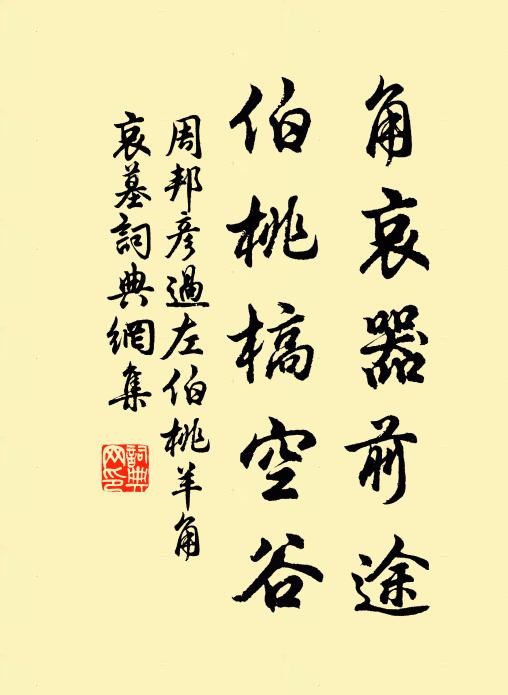 角哀器前途
伯桃槁空谷
周邦彥過左伯桃羊角
哀墓詞典網集
詞典网印